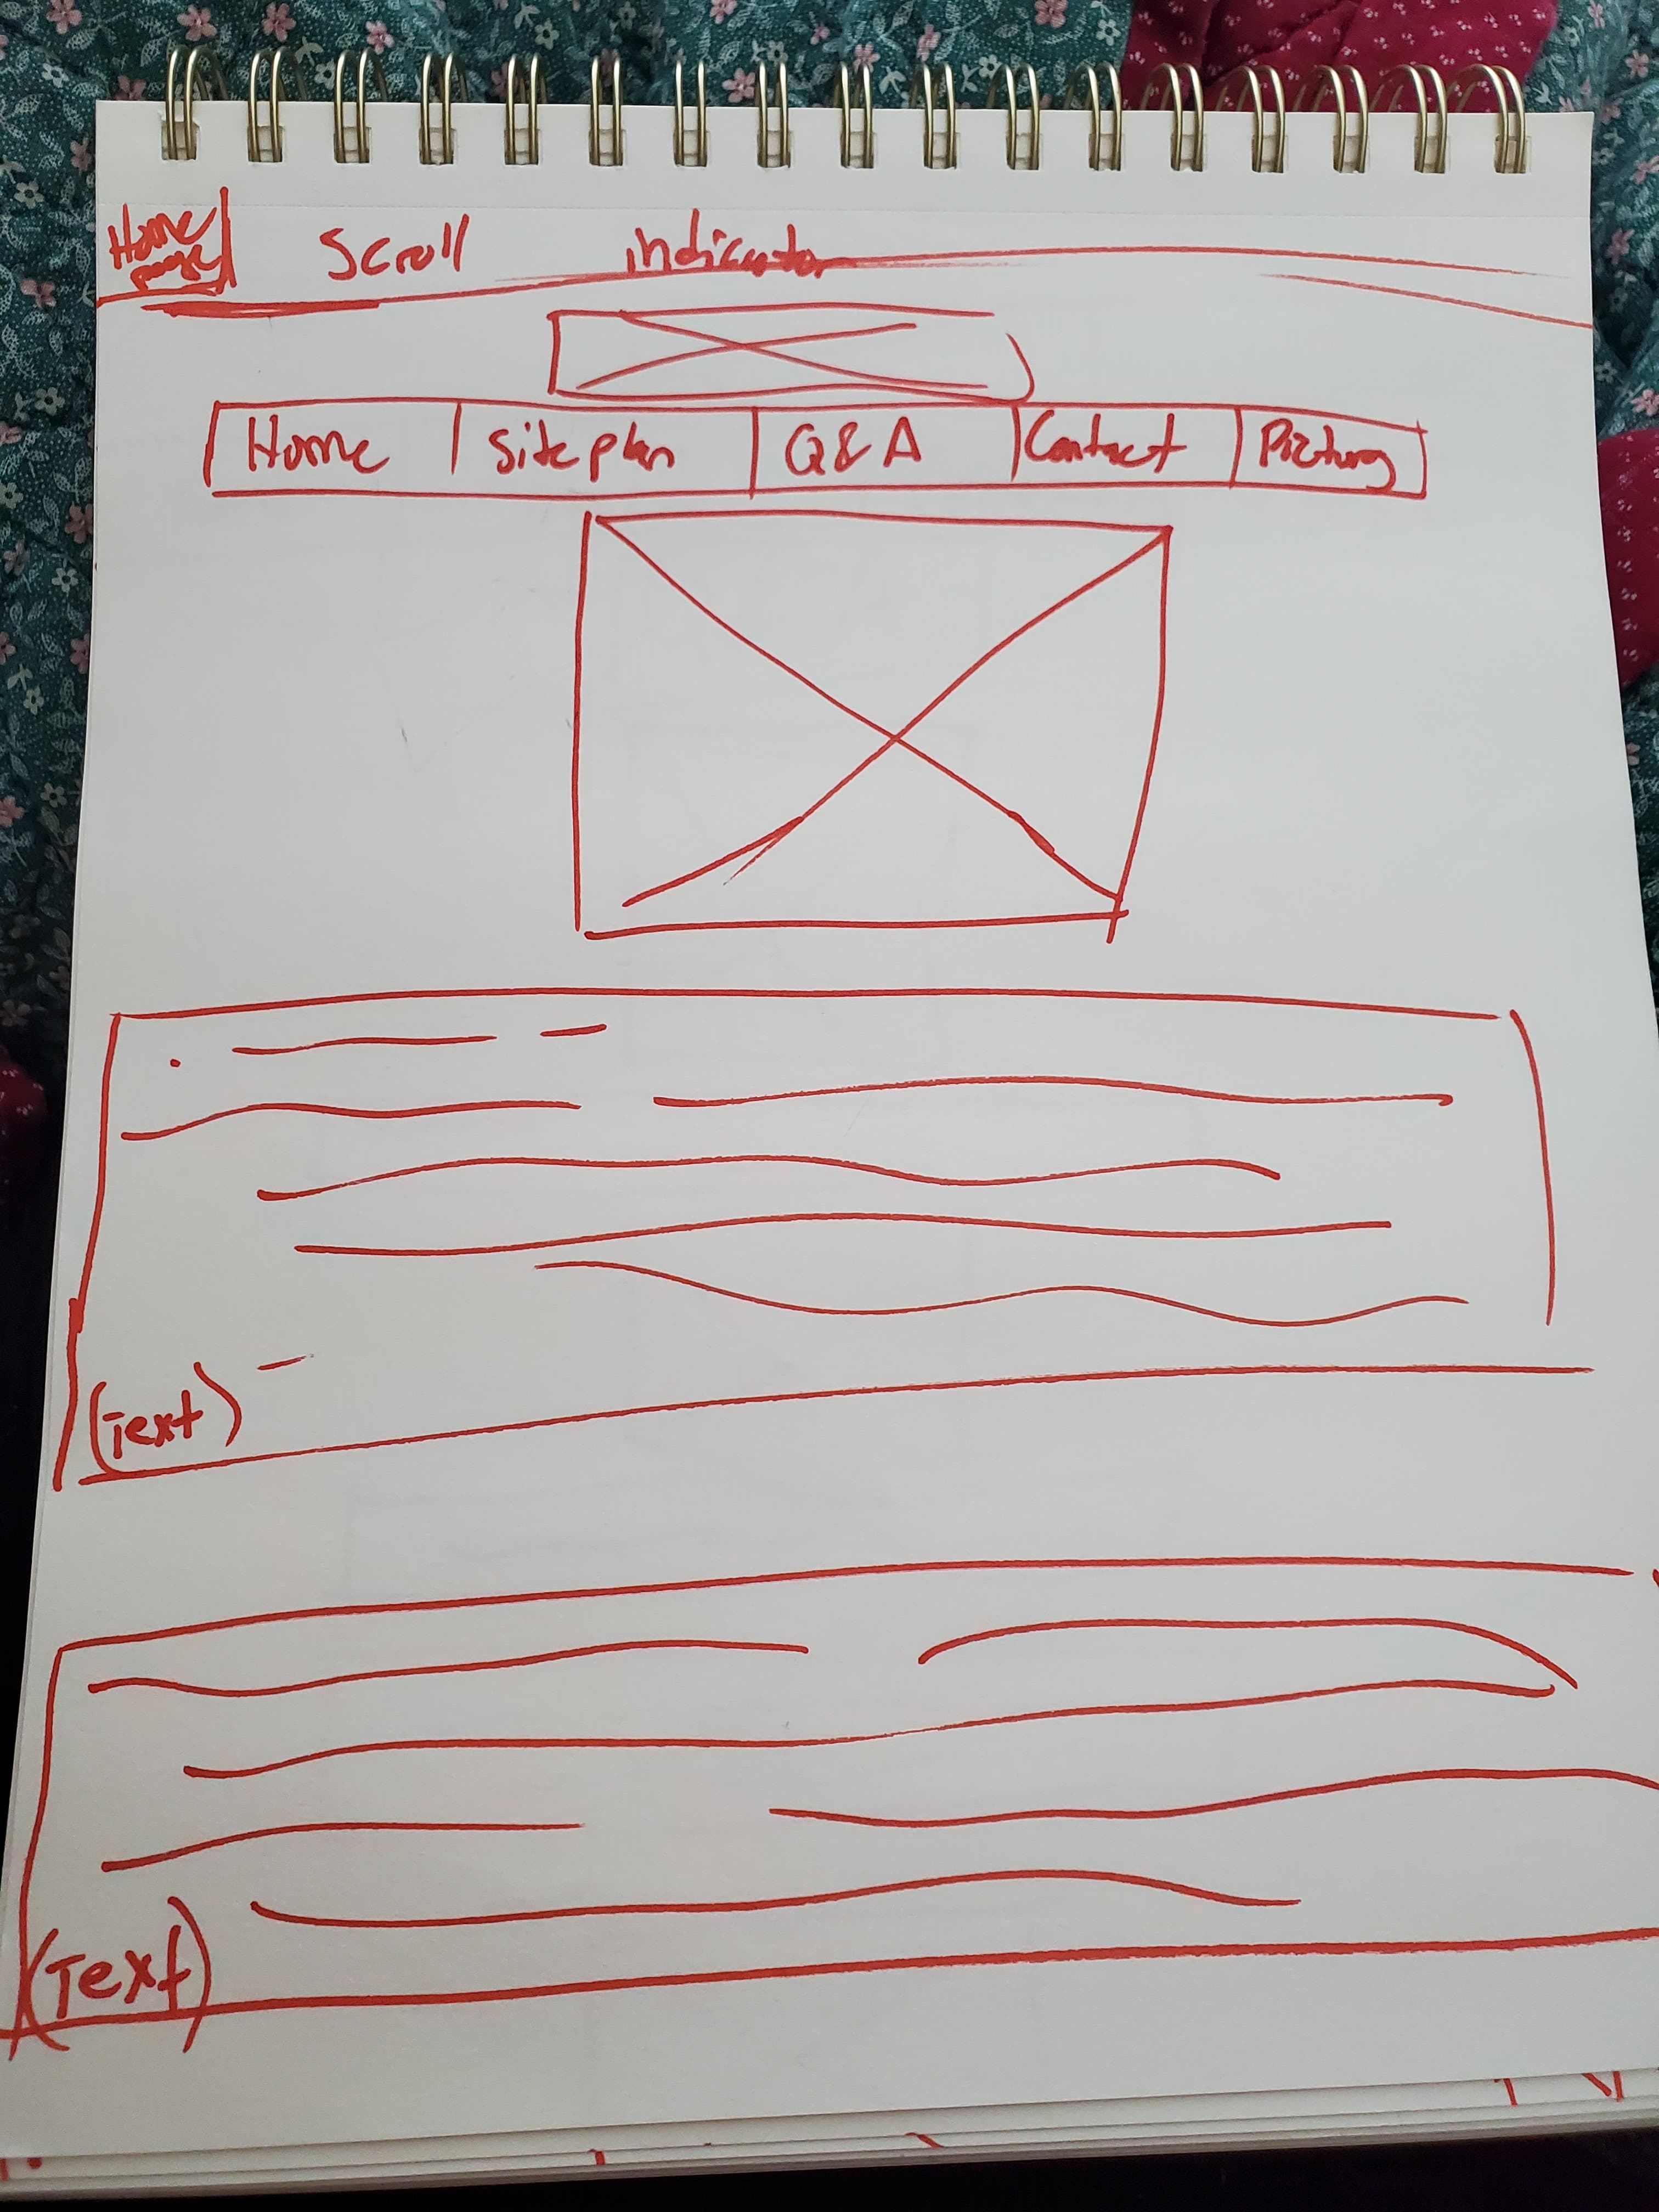 Home page
Scroll indicator
Home Site plan Q&A Contact Pictures
(Text)
(Text)